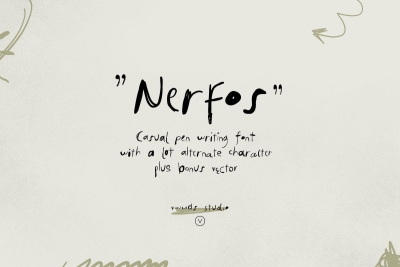 ” Nerfos ”
Casual pen writing font
with a lot alternate character
plus bonus vector
studio
V